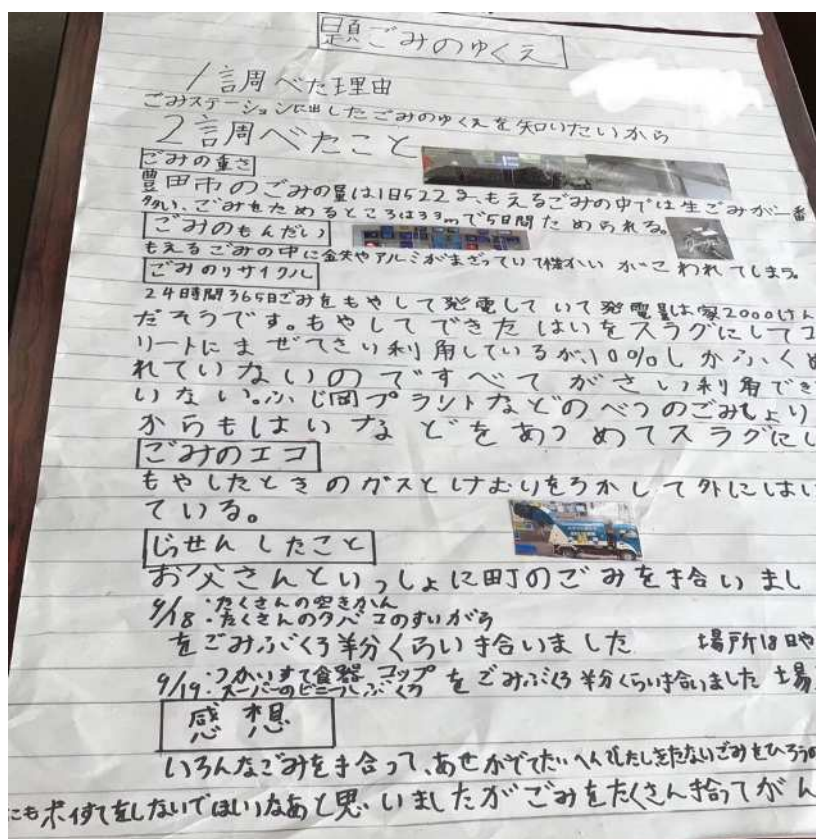 題 ごみのゆくえ
1 調べた理由
ごみステーションに出したごみのゆくえを知りたいから
2 調べたこと
ごみの重さ
豊田市のごみの量は1日522g、もえるごみの中では生ごみが一番
多い、ごみをためるところは33mで5日間ためられる。
ごみのもんだい
もえるごみの中に金ぞくやアルミがまざっていて機かいがこわれてしまう。
ごみのリサイクル
24時間365日ごみをもやして発電していて発電量は家2000けん
だそうです。もやしてできたはいをスラグにしてコ
リートにまぜてさい利用しているが、10%しかふくめ
れていないのですべてがさい利用でき
いない。ふじ岡プラントなどのべつのごみしょり
からもはいなどをあつめてスラグにし
ごみのエコ
もやしたときのガスとけむりをろかして外にはい
ている。
じっせんしたこと
お父さんといっしょに町のごみを拾いまし
9/18・たくさんの空きかん
・たくさんのタバコのすいがら
をごみぶくろ半分くらい拾いました 場所は日や
9/19・つかいすて食器 コップ
・スーパーのビニールぶくろ をごみぶくろ半分くらい拾いました 場
感想
いろんなごみを拾って、あせがでてたいへんでしたしきたないごみをひろうの
にもポイすてをしないでほしいなあと思いましたがごみをたくさん拾ってがん